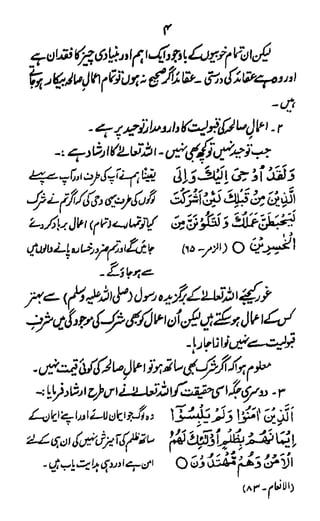 ۴
لیکن ان تمام خوبیوں کے باوجود ایک اہم اور بنیادی چیز کا فقدان ہے
اور وہ ہے عقائد کی درستی ۔ عقائد اگر صحیح نہ ہوں تو تمام اعمال صالحہ بیکار ہو جاتے
ہیں ۔
۲ ۔ اعمال صالحہ کی قبولیت کا دارومدار توحید پر ہے ۔
جب توحید نہیں تو کچھ بھی نہیں ۔ اللہ تعالےٰ کا ارشاد ہے :۔
وَلَقَدْ اُوْحِیَ اِلَیْكَ وَاِلَی
الَّذِیْنَ مِنْ قَبْلِكَ لَئِنْ اَشْرَكْتَ
لَیَحْبَطَنَّ عَمَلُكَ وَلَتَكُوْنَنَّ مِنَ
الْخٰسِرِیْنَ ○ (الزمر – ۶۵)
یقیناً ہم نے آپ کی طرف اور آپ سے پہلے
لوگوں کی طرف یہی وحی کی کہ اگر تم نے شرک
کیا تو تمہارے (تمام) اعمال برباد کر دئے
جائیں گے اور تم ضرور خسارہ پانے والوں میں
سے ہو جاؤ گے ۔
غور کیجئے اللہ تعالےٰ کے برگزیدہ رسول (صلی اللہ علیہ وسلم) سے بہتر
کس کے اعمال ہو سکتے ہیں لیکن اُن اعمال کو بھی شرک کی موجودگی میں شرفِ
قبولیت سے نہیں نوازا جا رہا ۔
معلوم ہوا کہ اگر شرک بھی ساتھ ہو تو اعمال صالحہ کی کوئی قیمت نہیں ۔
۳ ۔ دوسری جگہ اسی حقیقت کو اللہ تعالےٰ نے اس طرح ارشاد فرمایا :۔
اَلَّذِیْنَ اٰمَنُوْا وَلَمْ یَلْبِسُوْۤا
اِیْمَانَهُمْ بِظُلْمٍ اُولٰٓئِكَ لَهُمُ
الْاَمْنُ وَهُمْ مُّهْتَدُوْنَ ○
(الانعام – ۸۳)
وہ لوگ جو ایمان لائے اور اپنے ایمان کے
ساتھ ظلم کی آمیزش نہیں کی ان ہی کے لئے
امن ہے اور وہی ہدایت یاب ہیں ۔